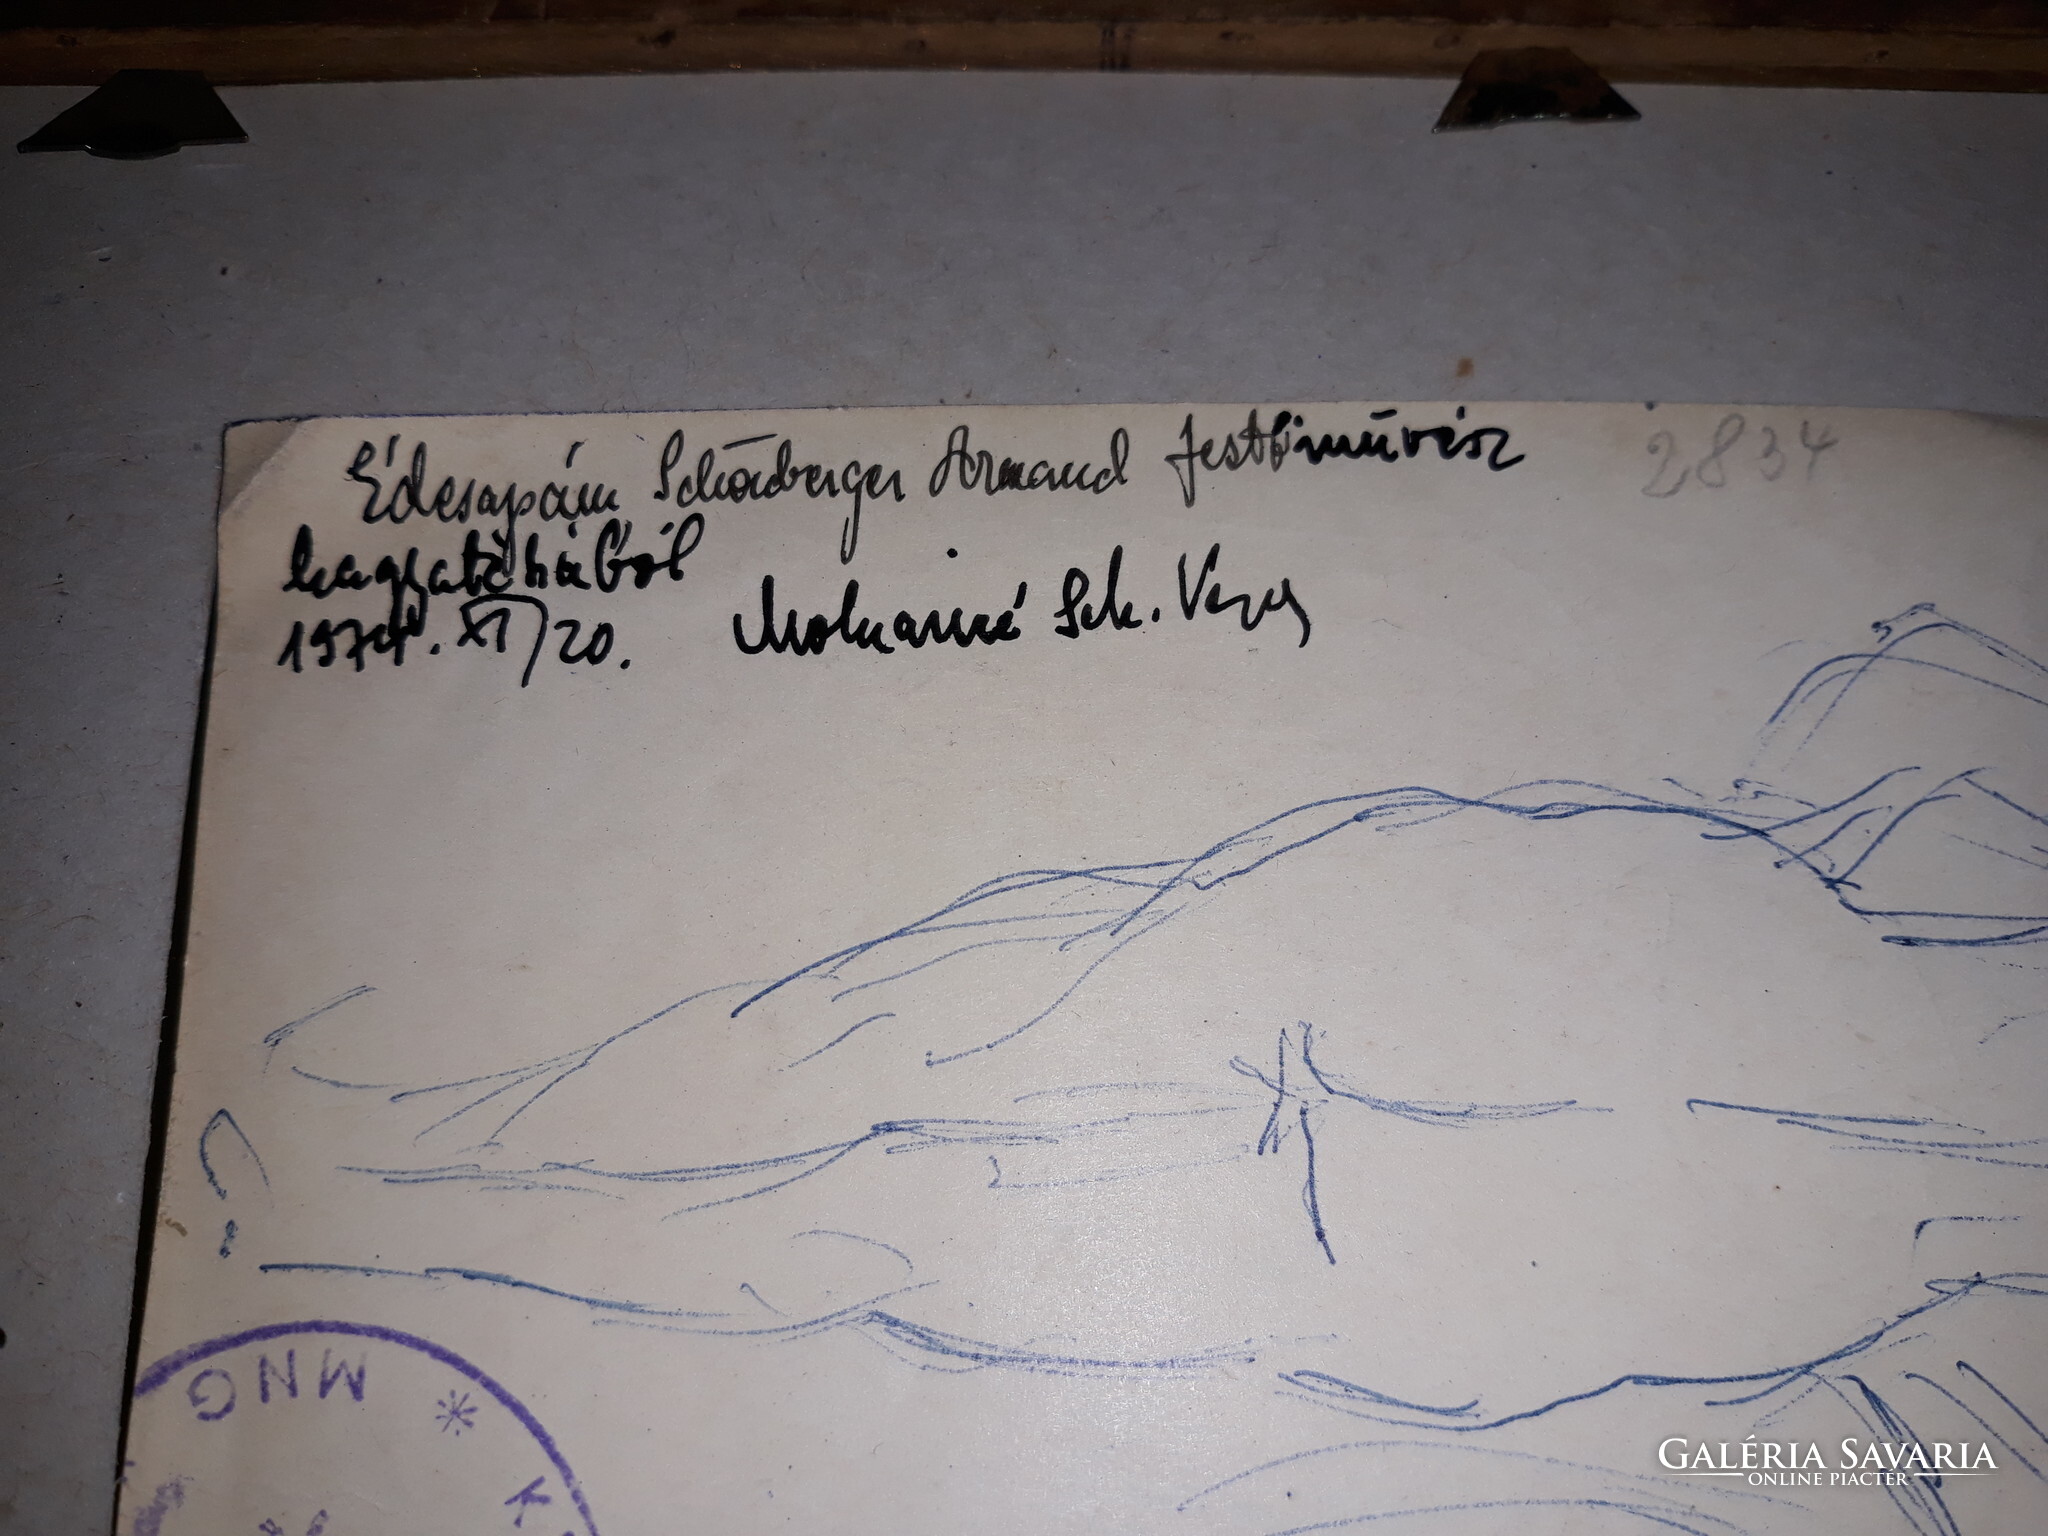 Édesapám Schönberger Armand festőművész
2834
hagyatékából
1974. XI/20.
Sch. Vera
MNG *
K
GALÉRIA SAVARIA
ONLINE PIACTÉR